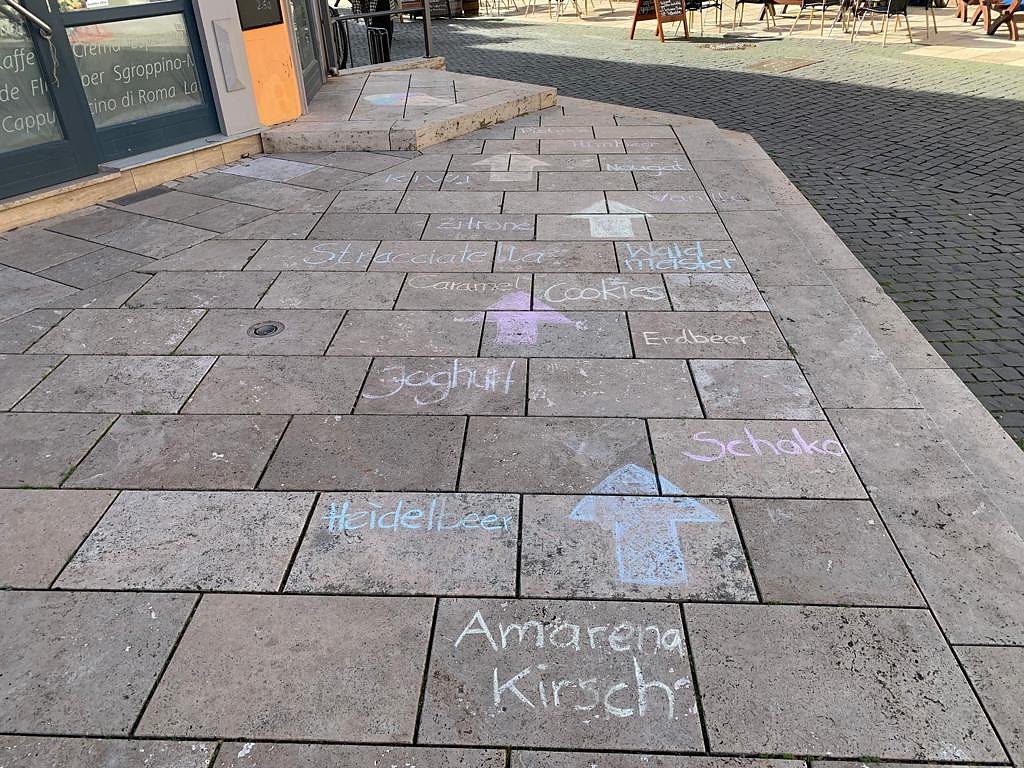 Kaffe Crema
de Sgroppino
Cappu cino di Roma
Himbeer
Nougat
KIWI
Vanille
Zitrone
Stracciatella
Wald
meister
Caramel
Cookies
Erdbeer
Joghurt
Schoko
Heidelbeer
Amarena
Kirsch